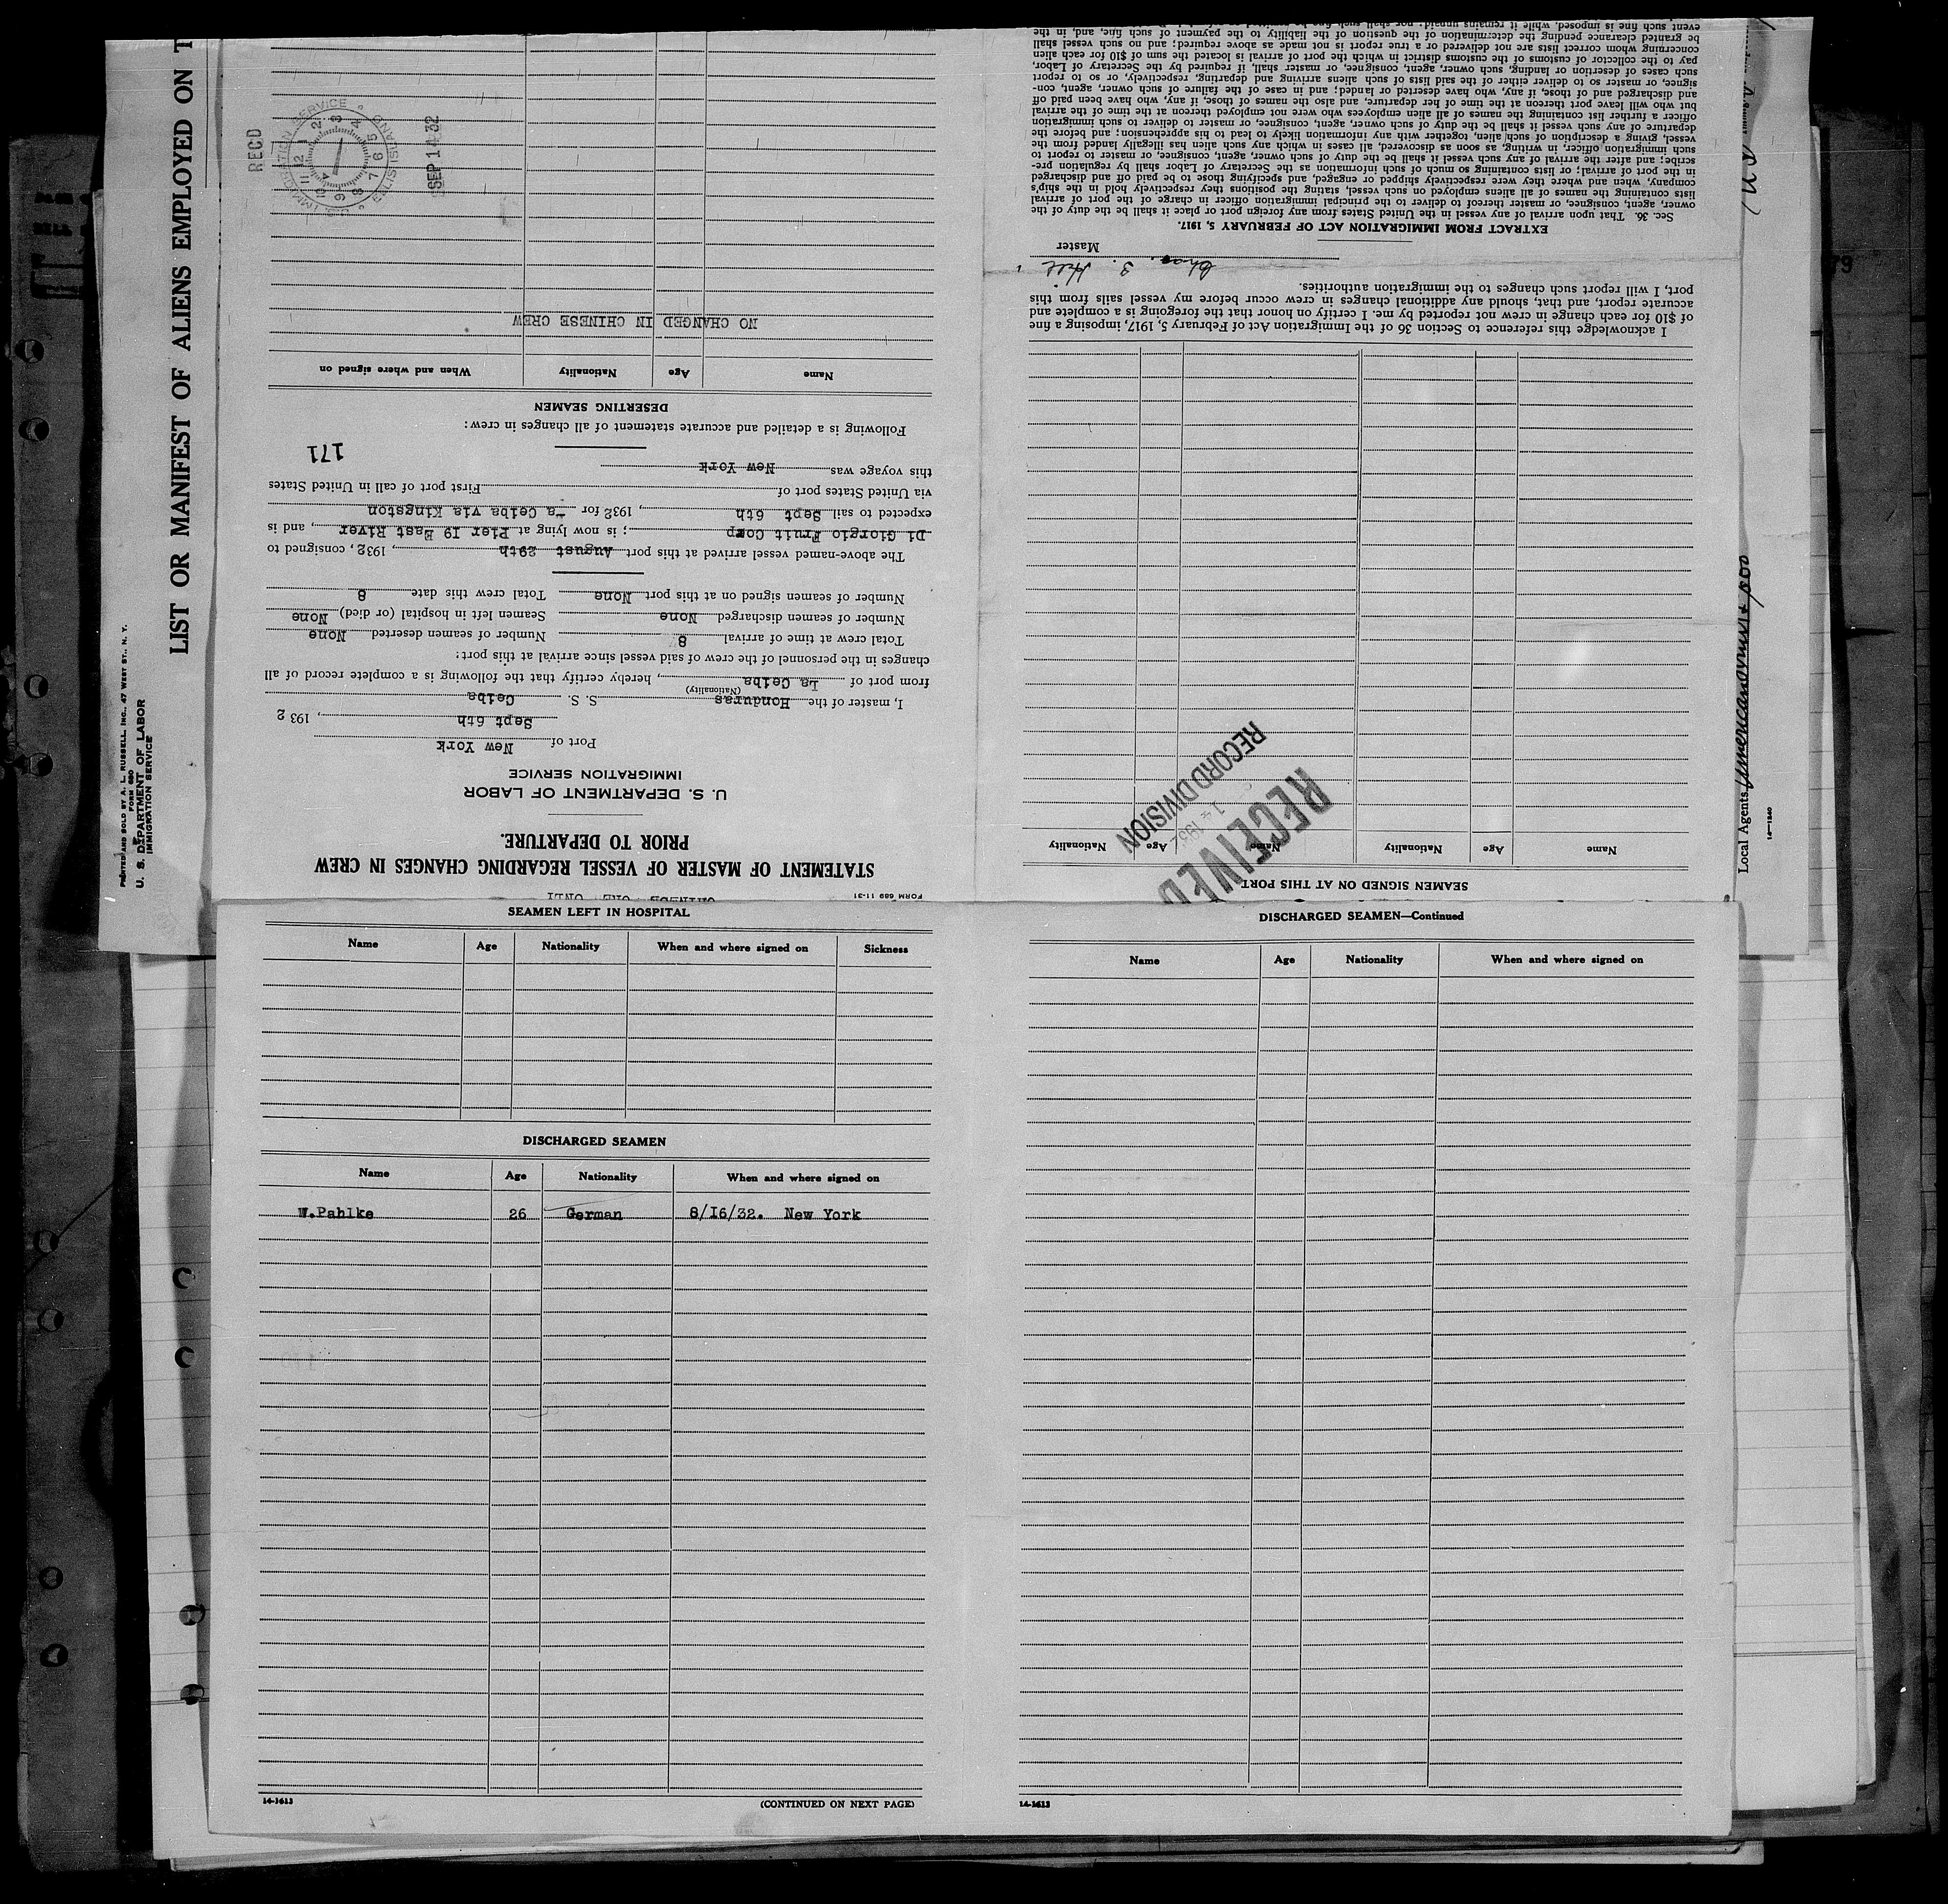 LIST OR MANIFEST OF ALIENS EMPLOYED ON T
PRINTED AND SOLD BY A. L. RUSSELL, INC., 47 WEST ST., N. Y.
FORM 680
U. S. DEPARTMENT OF LABOR
IMMIGRATION SERVICE
FORM 689 11-31
STATEMENT OF MASTER OF VESSEL REGARDING CHANGES IN CREW
PRIOR TO DEPARTURE.
U. S. DEPARTMENT OF LABOR
IMMIGRATION SERVICE
Port of New York
Sept 6th, 1932
I, master of the Honduras S. S. Ceiba
(Nationality)
from port of La Ceiba, hereby certify that the following is a complete record of all
changes in the personnel of the crew of said vessel since arrival at this port:
Total crew at time of arrival 8 Number of seamen deserted None
Number of seamen discharged None Seamen left in hospital (or died) None
Number of seamen signed on at this port None Total crew this date 8
The above-named vessel arrived at this port August 29th, 1932, consigned to
Di Giorgio Fruit Corp; is now lying at Pier 19 East River, and is
expected to sail Sept 6th, 1932 for La Ceiba via Kingston
via United States port of First port of call in United States
this voyage was New York
171
Following is a detailed and accurate statement of all changes in crew:
DESERTING SEAMEN
Name Age Nationality When and where signed on
NO CHANGED IN CHINESE CREW
RECD
U.S. IMMIGRATION SERVICE ELLIS ISLAND
SEP 14 32
SEAMEN SIGNED ON AT THIS PORT
Name Age Nationality Name Age Nationality
RECEIVED
RECORD DIVISION
I acknowledge this reference to Section 36 of the Immigration Act of February 5, 1917, imposing a fine
of $10 for each change in crew not reported by me. I certify on honor that the foregoing is a complete and
accurate report, and that, should any additional changes in crew occur before my vessel sails from this
port, I will report such changes to the immigration authorities.
Master
EXTRACT FROM IMMIGRATION ACT OF FEBRUARY 5, 1917.
Sec. 36. That upon arrival of any vessel in the United States from any foreign port or place it shall be the duty of the
owner, agent, consignee, or master thereof to deliver to the principal immigration officer in charge of the port of arrival
lists containing the names of all aliens employed on such vessel, stating the positions they respectively hold in the ship's
company, when and where they were respectively shipped or engaged, and specifying those to be paid off and discharged
in the port of arrival; or lists containing so much of such information as the Secretary of Labor shall by regulation pre-
scribe; and after the arrival of any such vessel it shall be the duty of such owner, agent, consignee, or master to report to
such immigration officer, in writing, as soon as discovered, all cases in which any such alien has illegally landed from the
vessel, giving a description of such alien, together with any information likely to lead to his apprehension; and before the
departure of any such vessel it shall be the duty of such owner, agent, consignee, or master to deliver to such immigration
officer a further list containing the names of all alien employees who were not employed thereon at the time of the arrival
but who will leave port thereon at the time of her departure, and also the names of those, if any, who have been paid off
and discharged and of those, if any, who have deserted or landed; and in case of the failure of such owner, agent, con-
signee, or master so to deliver either of the said lists of such aliens arriving and departing, respectively, or so to report
such cases of desertion or landing, such owner, agent, consignee, or master, shall, if required by the Secretary of Labor,
pay to the collector of customs of the customs district in which the port of arrival is located the sum of $10 for each alien
concerning whom correct lists are not delivered or a true report is not made as above required; and no such vessel shall
be granted clearance pending the determination of the question of the liability to the payment of such fine, and, in the
event such fine is imposed, while it remains unpaid; nor shall such fine be
Local Agents
14—1240
SEAMEN LEFT IN HOSPITAL
Name Age Nationality When and where signed on Sickness
DISCHARGED SEAMEN
Name Age Nationality When and where signed on
W.Pahlke 26 German 8/16/32. New York
14-1613 (CONTINUED ON NEXT PAGE)
DISCHARGED SEAMEN—Continued
Name Age Nationality When and where signed on
14-1613